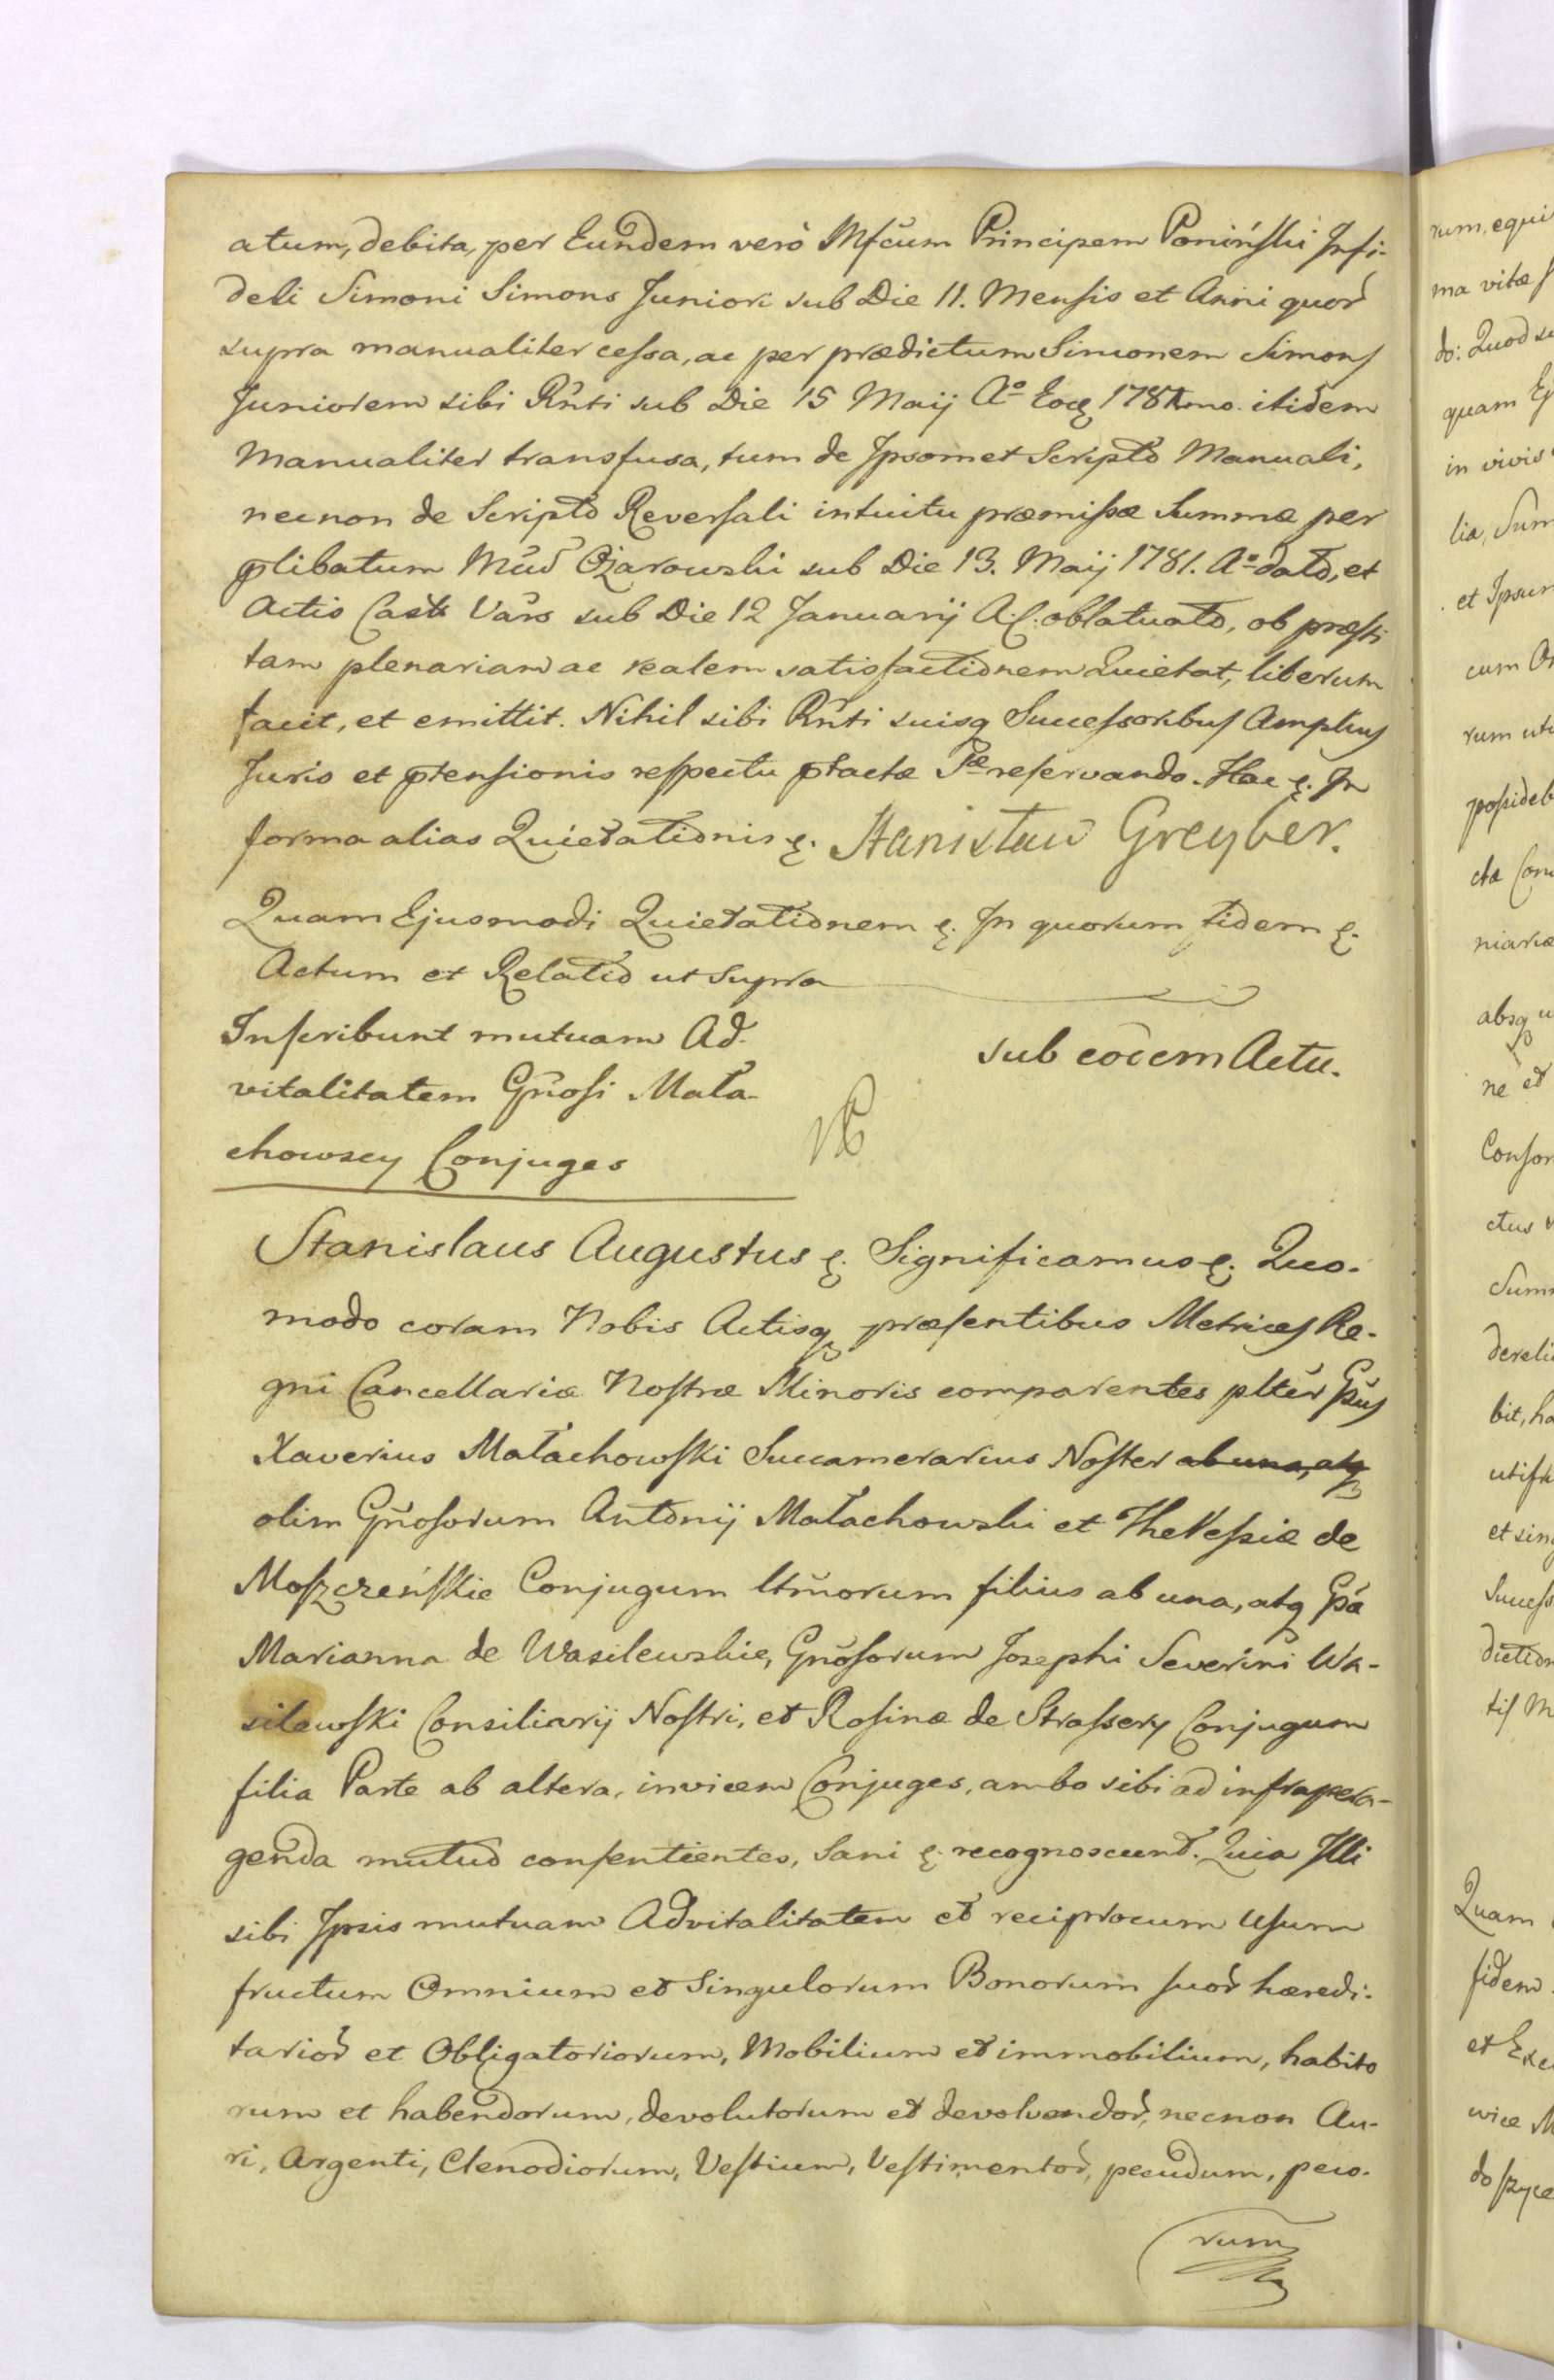 atum, debita, per Eundem verò Mfcum Principem Poniński Infi-
deli Simoni Simons Juniori sub Die 11. Mensis et Anni quor
supra manualiter cessa, ac per prædictum Simonem Simons
Juniorem sibi Rnti sub Die 15 Maij Aº Eoq 1781mo. itidem
Manualiter transfusa, tum de Ipsomet Scripto Manuali,
necnon de Scripto Reversali intuitu præmissæ Summæ per
plibatum Mud Ożarowski sub Die 13. Maij 1781. Aº dato, et
Actis Castr Vars sub Die 12 Januarij A.C. oblatuato, ob præsti
tam plenariam ac realem satisfactionem Quietat, liberum
facit, et emittit. Nihil sibi Rnti suisq Successoribus Amplius
Juris et ptensionis respectu ptactæ Sæ reservando. Hac &. In
forma alias Quietationis &. Stanisław Greyber.
Quam Ejusmodi Quietationem &. In quorum fidem &.
Actum et Relatio ut supra
Inscribunt mutuam Ad-
vitalitatem Gnosi Mała-
chowscy Conjuges
sub eocem Actu.
Stanislaus Augustus &. Significamus &. Quo-
modo coram Nobis Actisq præsentibus Metrices Re-
gni Cancellariæ Nostræ Minoris comparentes plter Gsus
Xaverius Małachowski Succamerarius Noster ab una, atq
olim Gnosorum Antonij Małachowski et Theressiæ de
Moszczeńskie Conjugum ltmorum filius ab una, atq Gsa
Marianna de Wasilewskie, Gnosorum Josephi Severini Wa-
silewski Consiliarij Nostri, et Rosinæ de Strassery Conjugum
filia Parte ab altera, invicem Conjuges, ambo sibi ad infrapera-
genda mutuo consentientes, Sani &. recognoscunt. Quia Illi
sibi Ipsis mutuam Advitalitatem et reciprocum Usum
fructum Omnium et Singulorum Bonorum suor hæredi-
tarior et Obligatoriorum, Mobilium et immobilium, habito
rum et habendorum, devolutorum et devolvendor, necnon Au-
ri, Argenti, Clenodiorum, Vestium, Vestimentor, pecudum, peco-
rum
rum, equi
ma vitæ
do: Quod
quam Ej
in vivis
lia, Sum
et Ipsum
cum
rum uti
possideb
ctæ Com
niariæ
absq u
ne et
Consor
ctus
Summ
dereli
bit, ha
utifr
et sing
Success
diction
tis M
Quam
fidem
et Exc
wice M
do